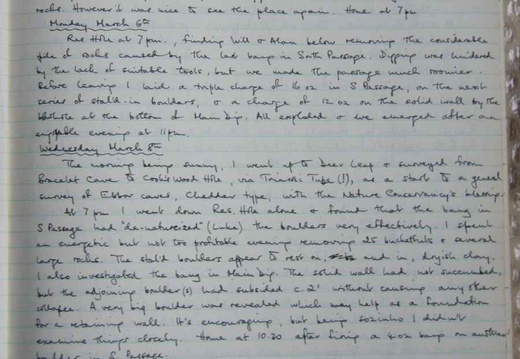 rocks. However it was nice to see the place again. Home at 7pm
Monday March 6th
Res. Hole at 7pm., finding Will & Alan below removing the considerable
pile of rocks caused by the last bang in South Passage. Digging was hindered
by the lack of suitable tools, but we made the passage much roomier.
Before leaving I laid a triple charge of 16 oz in S Passage, on the next
series of stal'd-in boulders, & a charge of 12 oz on the solid wall by the
at the bottom of Main Dip. All exploded & we emerged after an
enjoyable evening at 11pm.
Wednesday March 8th
The morning being sunny, I went up to Deer Leap & surveyed from
Bracelet Cave to Cook's Wood Hole, via Triassic Tube (!), as a start to a general
survey of Ebbor caves, Cheddar type, with the Nature Conservancy's blessing.
At 7pm I went down Res. Hole alone & found that the bang in
S Passage had "de-naturized" (Luke) the boulders very effectively. I spent
an energetic but not too profitable evening removing 20 bucketfuls & several
large rocks. The stal'd boulders appear to rest on, and in, dryish clay.
I also investigated the bang in Main Dip. The solid wall had not succumbed,
but the adjoining boulder(s) had subsided c.2' without causing any other
collapse. A very big boulder was revealed which may help as a foundation
for a retaining wall. It's encouraging, but being sozinho I didn't
examine things closely. Home at 10.30 after firing a 4oz bang on another
boulder in S. Passage.